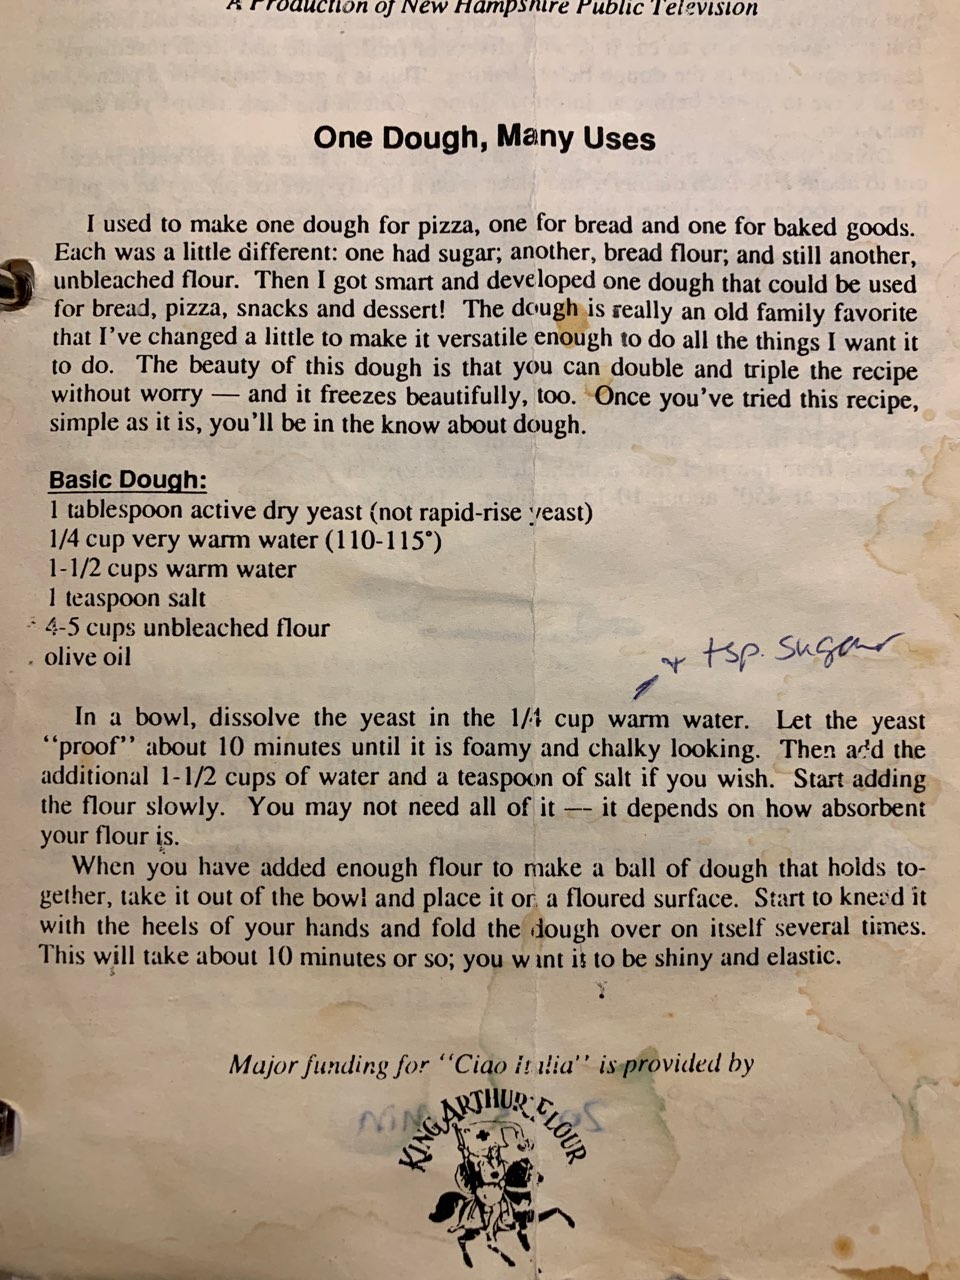 A Production of New Hampshire Public Television
One Dough, Many Uses
I used to make one dough for pizza, one for bread and one for baked goods.
Each was a little different: one had sugar; another, bread flour; and still another,
unbleached flour. Then I got smart and developed one dough that could be used
for bread, pizza, snacks and dessert! The dough is really an old family favorite
that I've changed a little to make it versatile enough to do all the things I want it
to do. The beauty of this dough is that you can double and triple the recipe
without worry — and it freezes beautifully, too. Once you've tried this recipe,
simple as it is, you'll be in the know about dough.
Basic Dough:
1 tablespoon active dry yeast (not rapid-rise yeast)
1/4 cup very warm water (110-115°)
1-1/2 cups warm water
1 teaspoon salt
4-5 cups unbleached flour
olive oil
+ tsp. sugar
In a bowl, dissolve the yeast in the 1/4 cup warm water. Let the yeast
“proof” about 10 minutes until it is foamy and chalky looking. Then add the
additional 1-1/2 cups of water and a teaspoon of salt if you wish. Start adding
the flour slowly. You may not need all of it — it depends on how absorbent
your flour is.
When you have added enough flour to make a ball of dough that holds to-
gether, take it out of the bowl and place it on a floured surface. Start to knead it
with the heels of your hands and fold the dough over on itself several times.
This will take about 10 minutes or so; you want it to be shiny and elastic.
Major funding for “Ciao Italia” is provided by
KING ARTHUR FLOUR